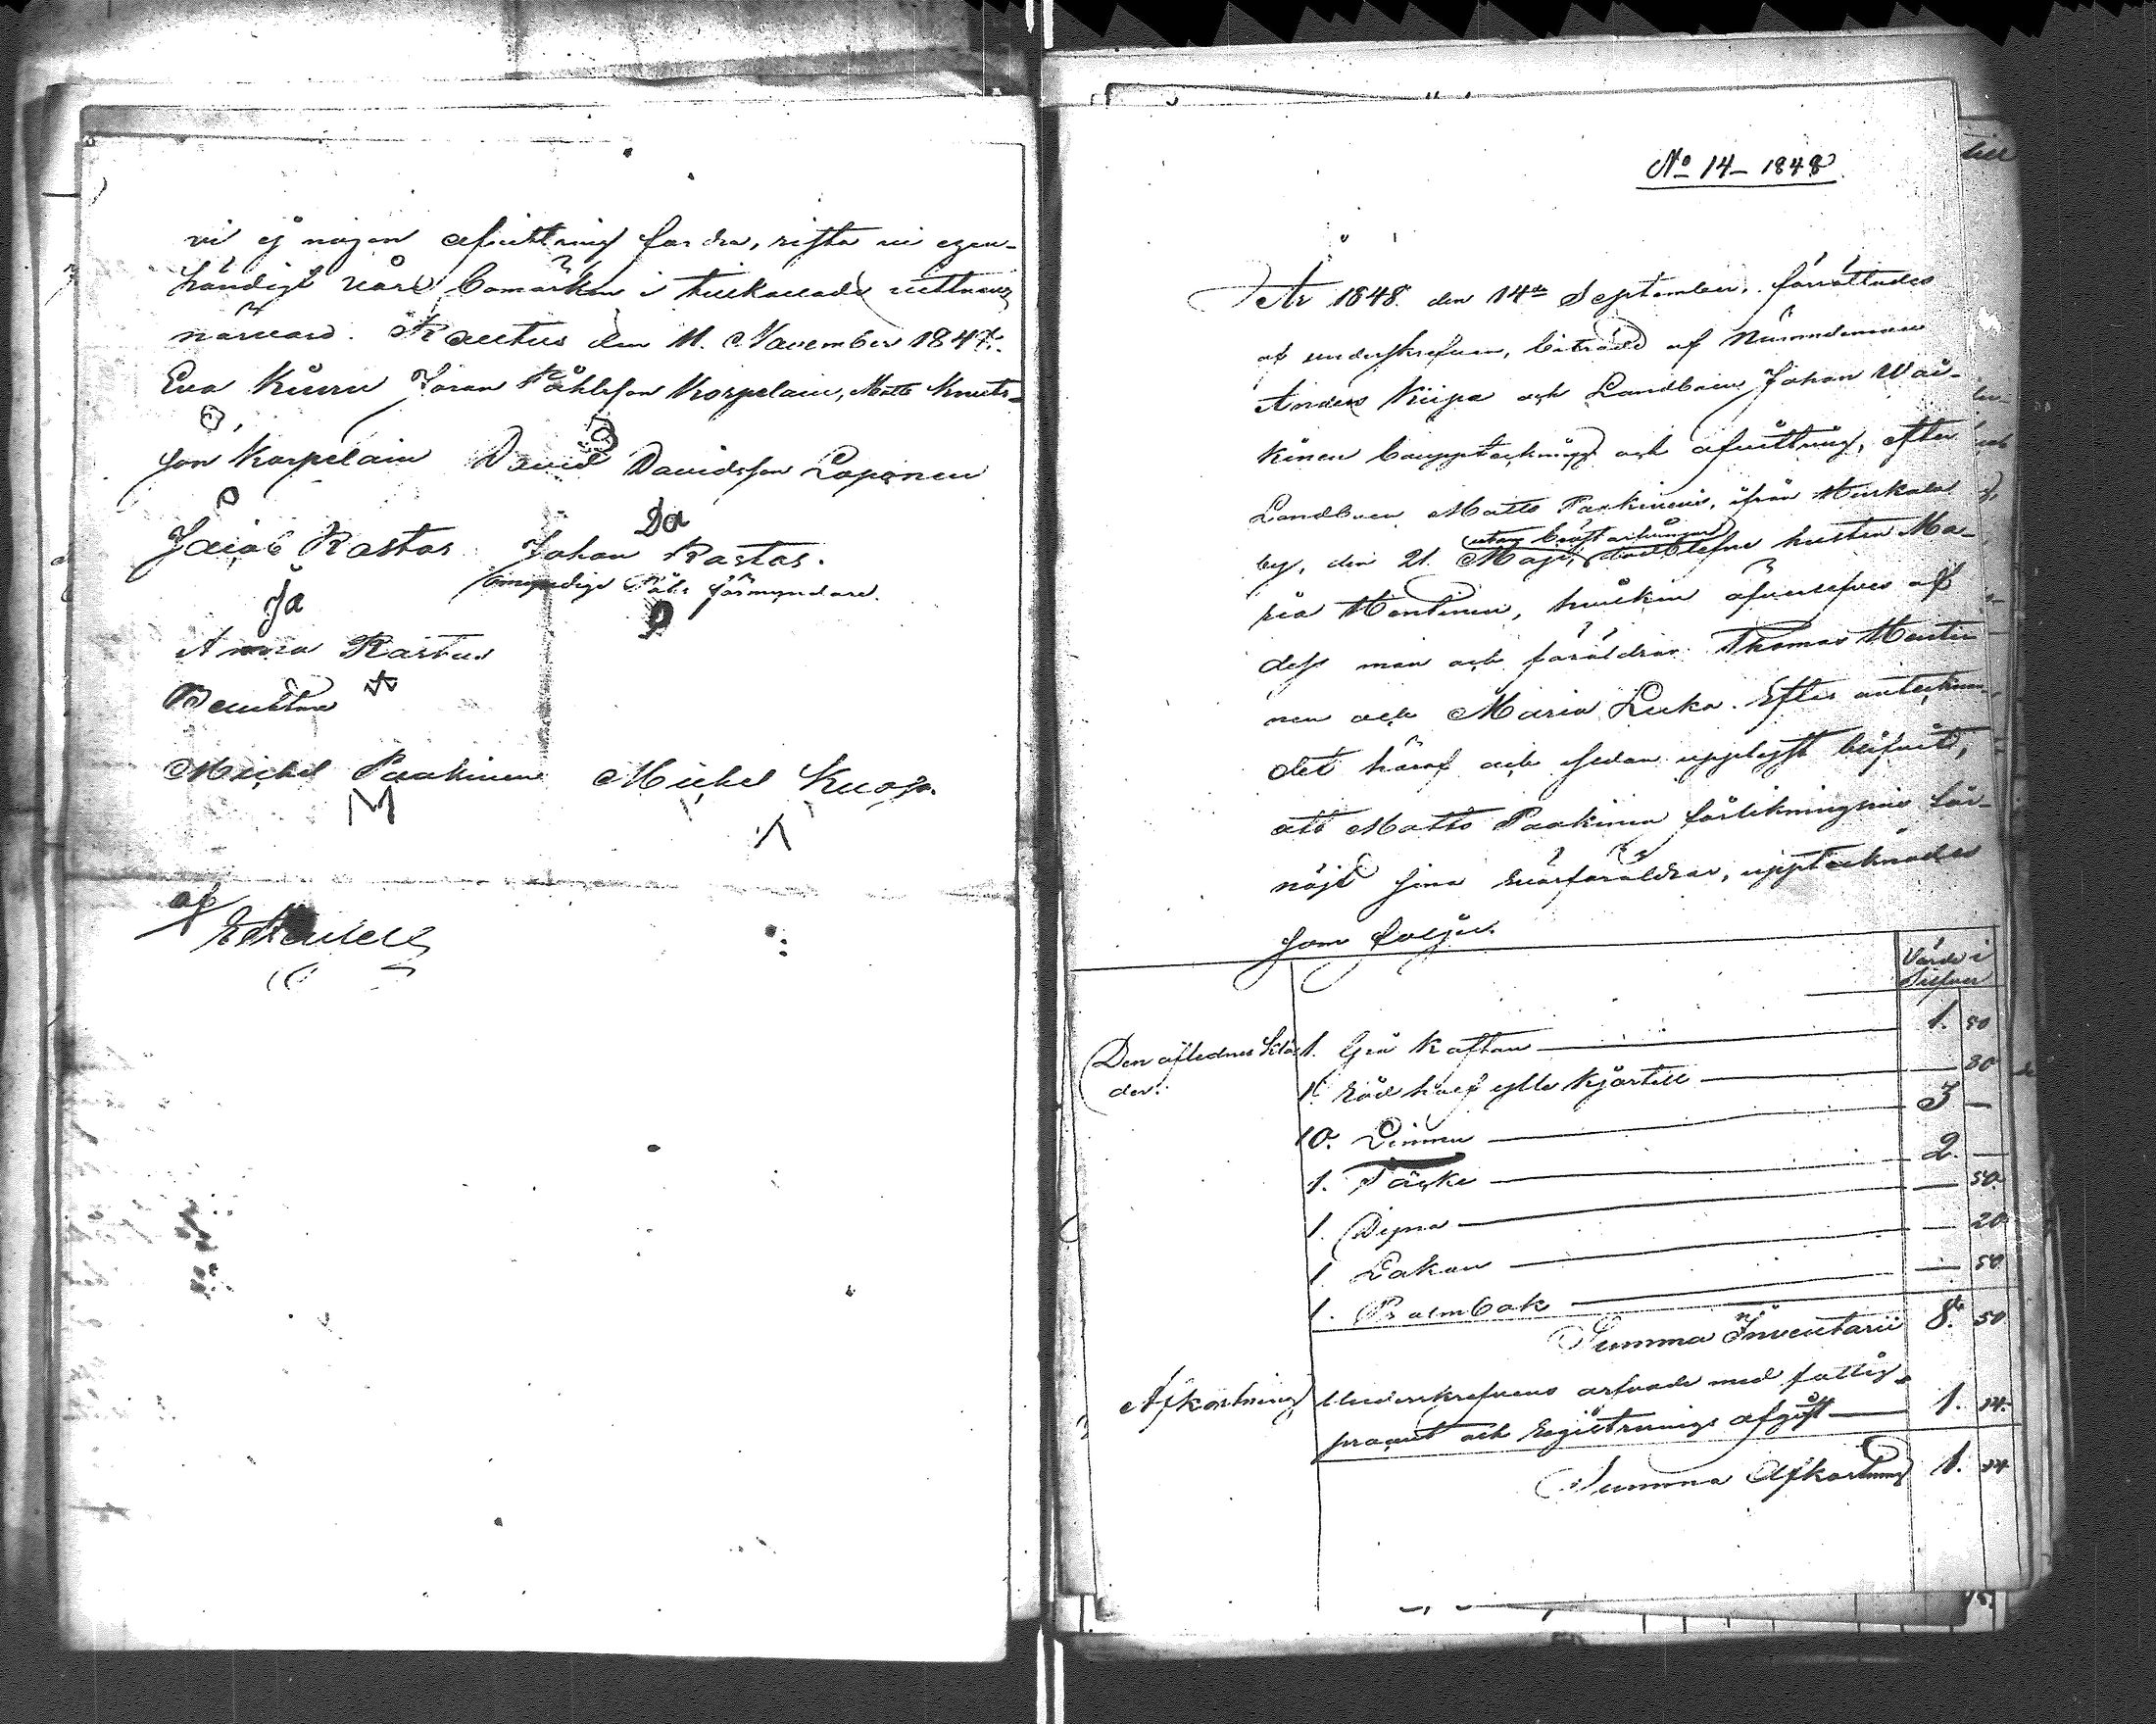 vi ej någon afvittring fordra, rista vi egen-
händigt våre bomärken i tillkallade vittnens
närvaro. Rautus den 11. November 1847.
Eva Kiuru Jöran Påhlsson Korpelain, Matts Knuts-
son Korpelain David Davidsson Loponen
Jacob Rastas Johan Rastas.
omyndige Påls förmyndare.
Anna Rastas
Bevittna
Michel Paakinen Michel Kuosa.
No 14- 1848
År 1848. den 14de September, förrättades
af undskrefven, biträdd af Nämndeman
Anders Kiipa och Landboen Johan Wäi-
kinen bouppteckning och afvittring, efter
Landboen Matts Paakinens, ifrån Murkala
by, den 21. Maji, utan bröstarfvingar
aflefne hustru Ma-
ria Hentinen, hvilken öfverlefves af
dess man och föräldrar Thomas Hentin
nen och Maria Luka. Efter anteckan-
det häraf och sedan upplyst blifvit,
att Matts Paakinen förlikningsvis för-
nöjt sina svärföräldrar, upptecknades
som följer.
Värde i
Silfver
Den aflednes Klä- 1. Grå Kaftan 1. 50
der: 1. röd half ylle Kjortill 80
10. Linnu 3 —
1. Täcke 2. —
1. Dyna — 50.
1. Lakan — 20
1. Psalmbok — 50
Summa Inventarii 8. 50
Afkortning Underskrefvens arfvode med fattig-
procent och Registrerings afgift 1. 14.
Summa Afkortning 1. 14